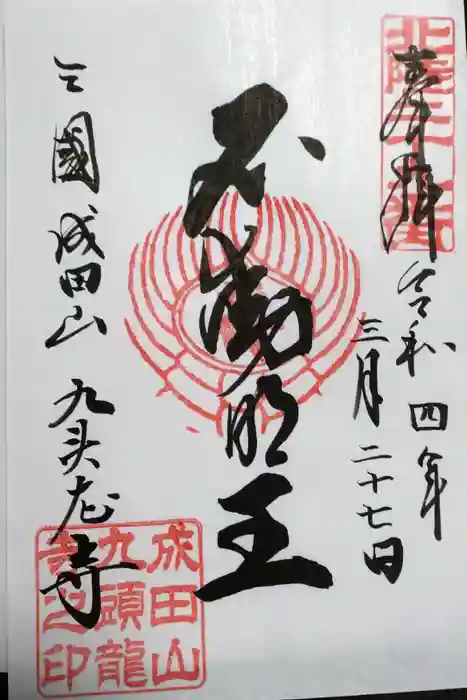 奉拝
令和四年
三月二十七日
不動明王
三國成田山九头龙寺
成田山
九頭龍
寺之印